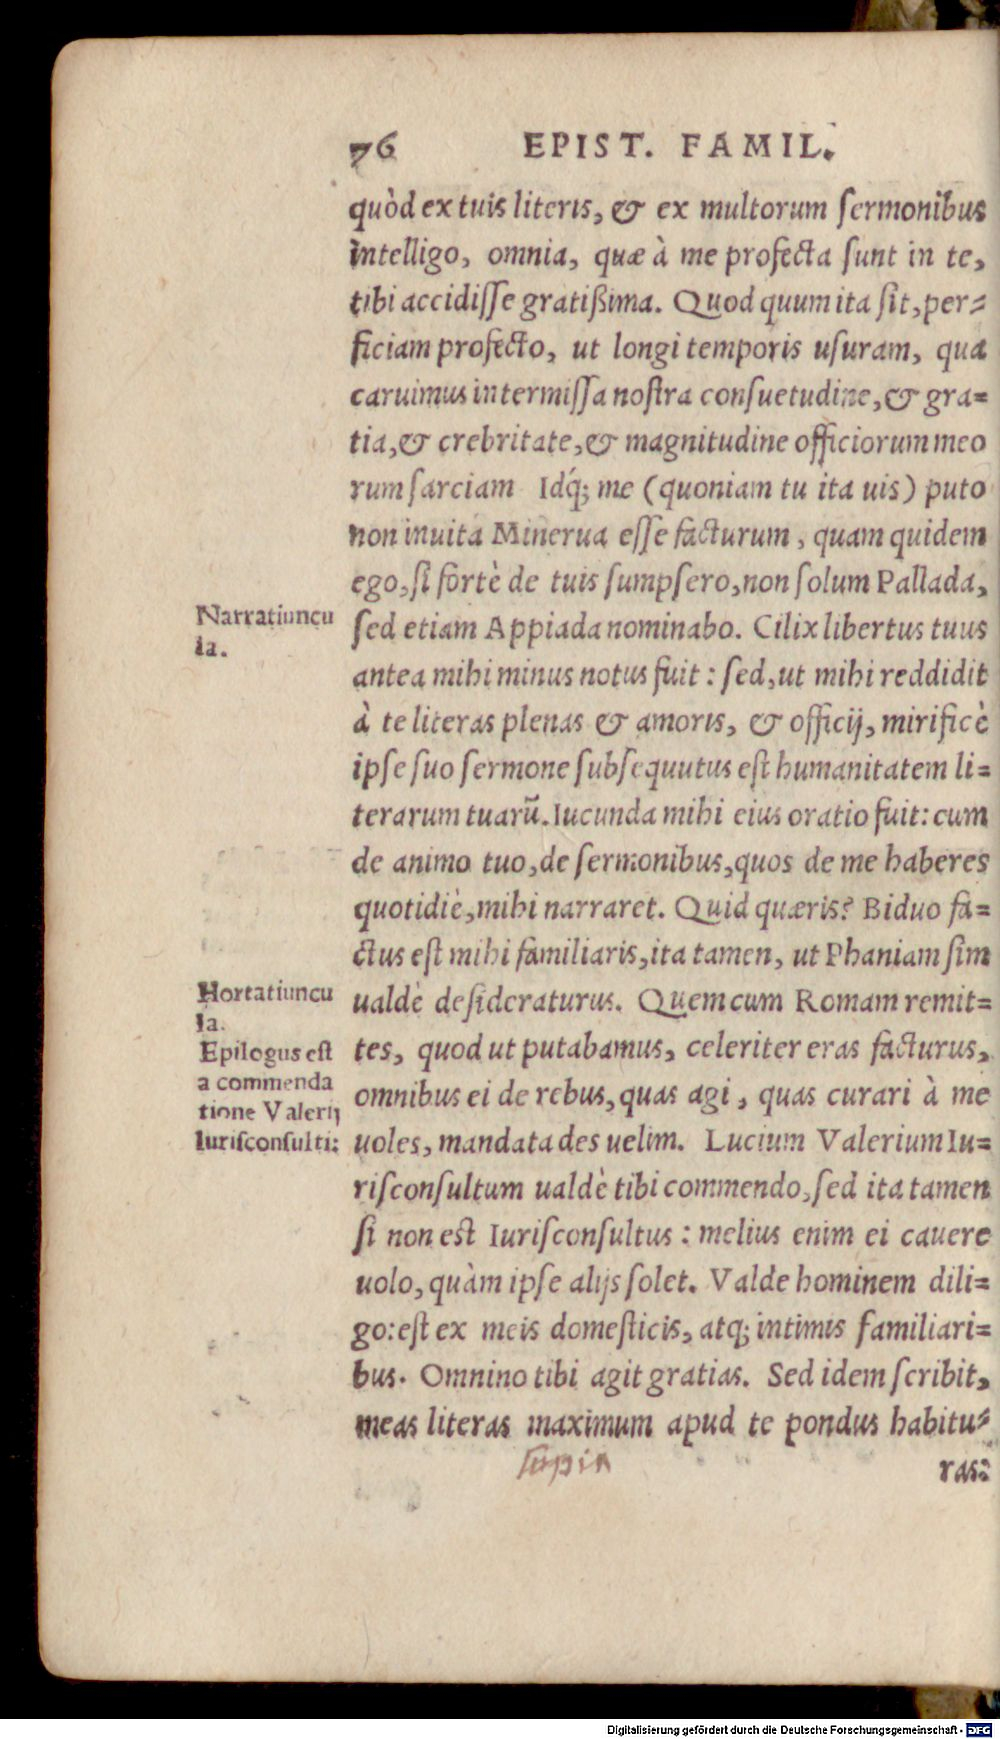 76 EPIST. FAMIL.
quòd ex tuis literis, & ex multorum ſermonibus
intelligo, omnia, quæ à me profecta ſunt in te,
tibi accidiſſe gratißima. Quod quum ita ſit, per=
ficiam profectò, ut longi temporis uſuram, qua
caruimus intermiſſa noſtra conſuetudine, & gra=
tia, & crebritate, & magnitudine officiorum meo
rum ſarciam Idq́; me (quoniam tu ita uis) puto
non inuita Minerua eſſe facturum, quam quidem
ego, ſi fortè de tuis ſumpſero, non ſolum Pallada,
Narratiuncu
la.
ſed etiam Appiada nominabo. Cilix libertus tuus
antea mihi minus notus fuit: ſed, ut mihi reddidit
à te literas plenas & amoris, & officij, mirificè
ipſe ſuo ſermone ſubſequutus eſt humanitatem li=
terarum tuarũ. Iucunda mihi eius oratio fuit: cum
de animo tuo, de ſermonibus, quos de me haberes
quotidiè, mihi narraret. Quid quæris? Biduo fa=
ctus eſt mihi familiaris, ita tamen, ut Phaniam ſim
Hortatiuncu
la.
ualdè deſideraturus. Quem cum Romam remit=
Epilogus eſt
a commenda
tione Valerij
Iuriſconſulti:
tes, quod ut putabamus, celeriter eras facturus,
omnibus ei de rebus, quas agi, quas curari à me
uoles, mandata des uelim. Lucium Valerium Iu=
riſconſultum ualdè tibi commendo, ſed ita tamen
ſi non est Iuriſconſultus: melius enim ei cauere
uolo, quàm ipſe alijs ſolet. Valde hominem dili=
go: eſt ex meis domeſticis, atq; intimis familiari=
bus. Omnino tibi agit gratias. Sed idem ſcribit,
meas literas maximum apud te pondus habitu=
ras:
Digitalisierung gefördert durch die Deutsche Forschungsgemeinschaft - DFG